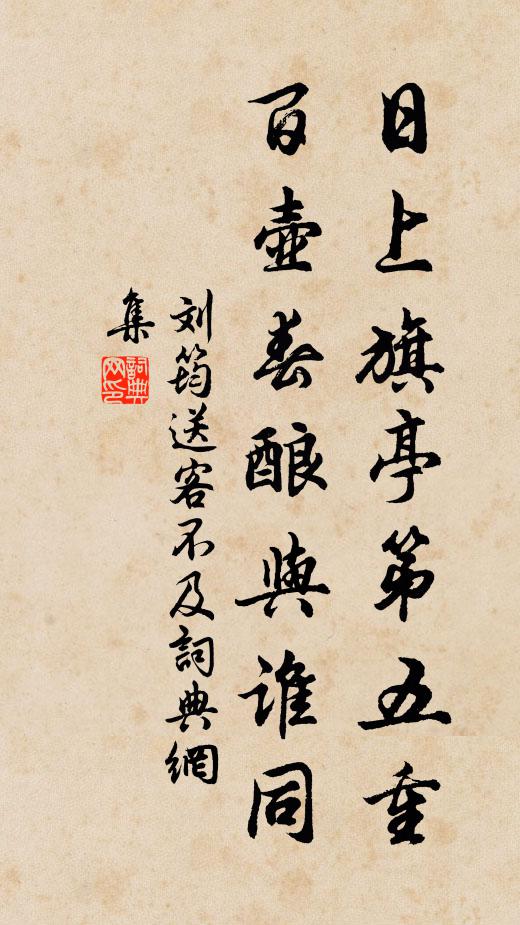 日上旗亭第五重
百壶春酿與谁同
刘筠送客不及詞典網
集
詞典
网印